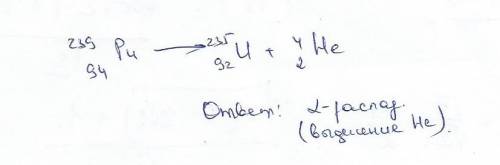 ²³⁹₉₄Pu → ²³⁵₉₂U + ⁴₂He
Ответ: α-распад.
(выделение He).